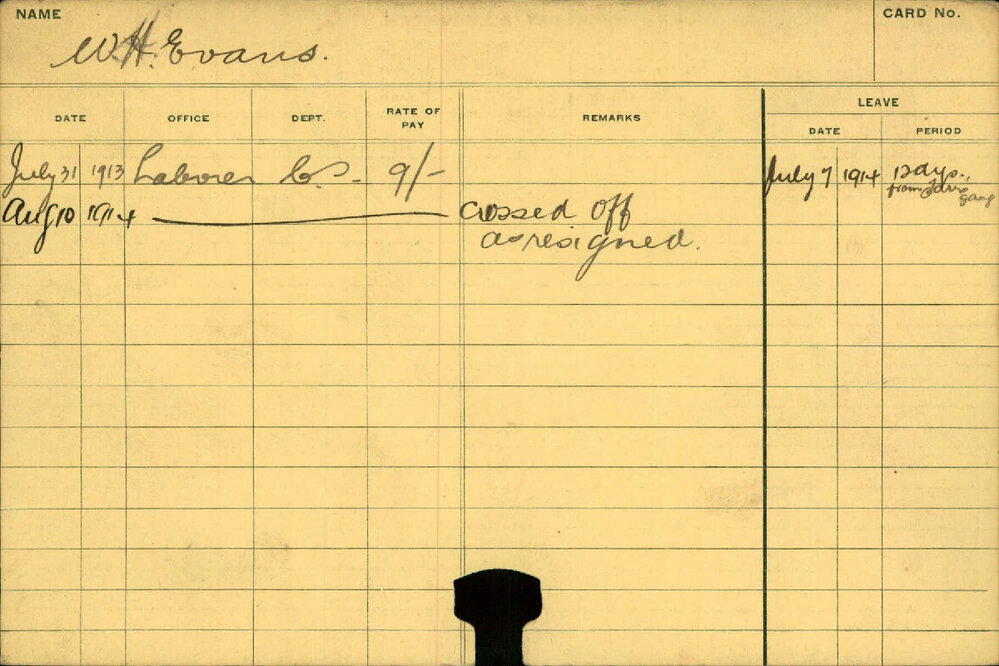 NAME
CARD No.
W.H. Evans.
LEAVE
DATE OFFICE DEPT. RATE OF PAY REMARKS DATE PERIOD
July 31 1913 Laborer 9/- July 7 1914 12 days.
from gang
Aug 10 1914 crossed off
as resigned.